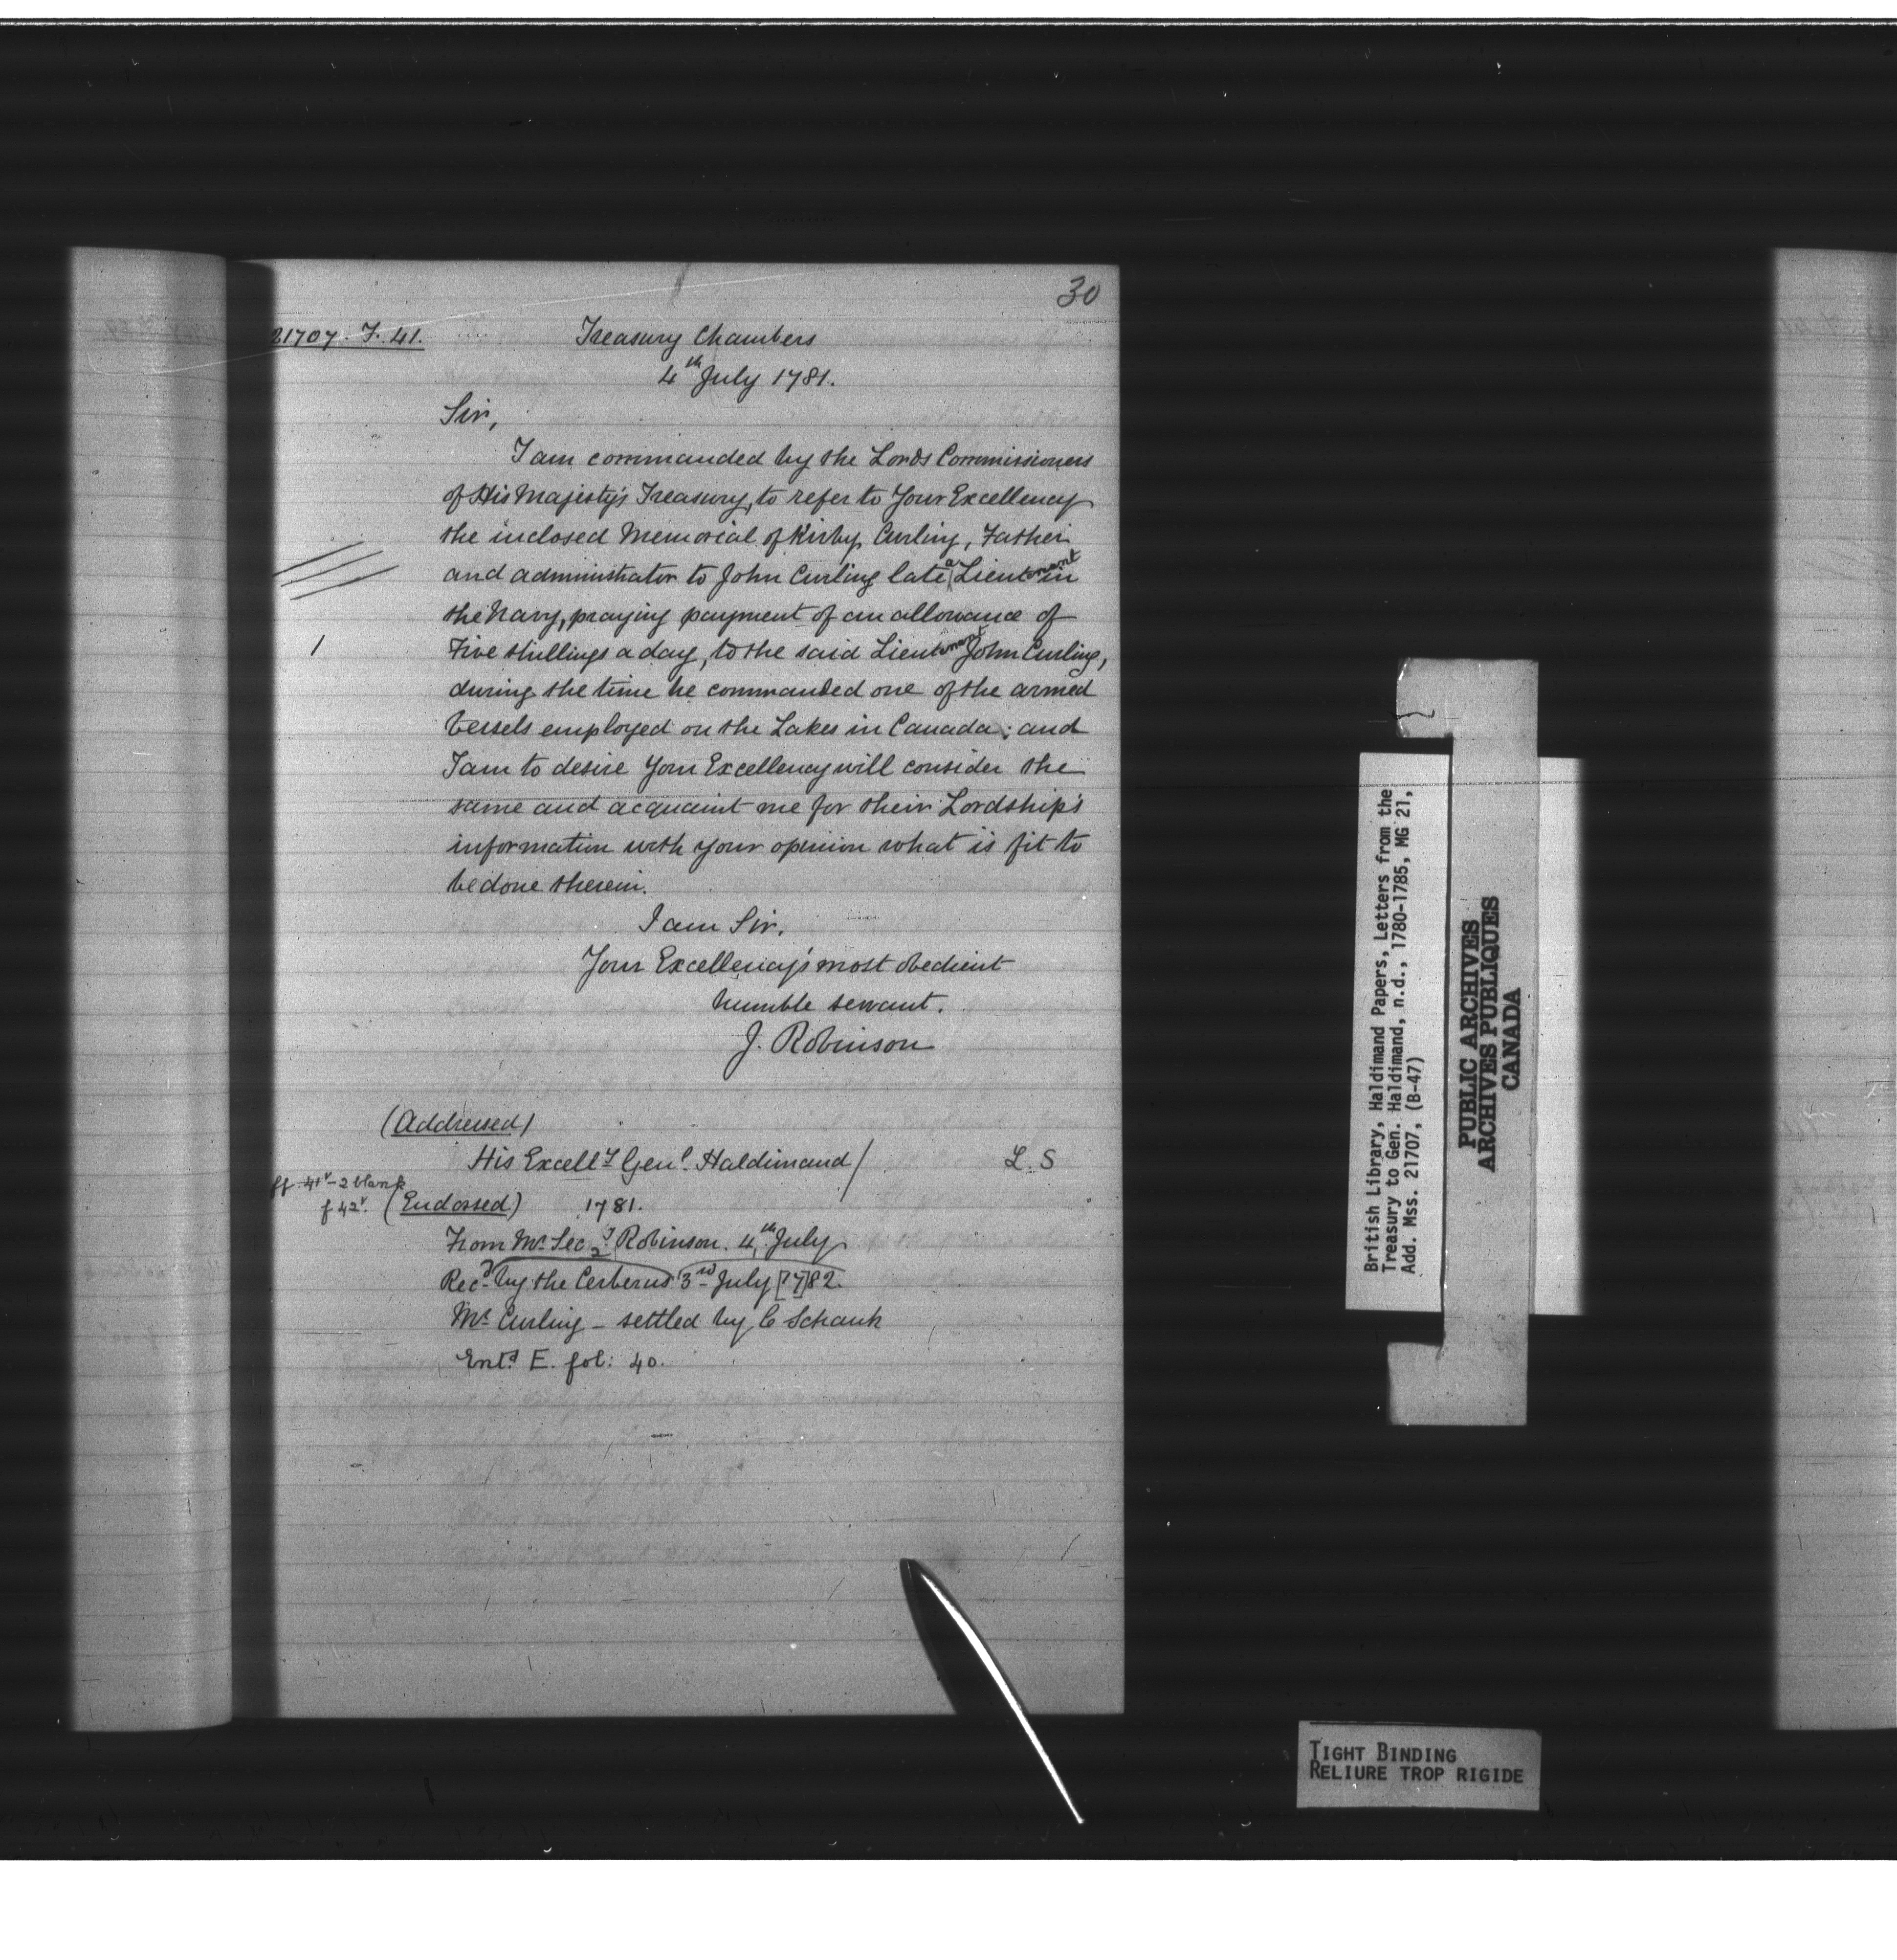 30
21707. F. 41.
Treasury Chambers
4th July 1781.
Sir,
I am commanded by the Lords Commissioners
of His Majesty's Treasury, to refer to Your Excellency
the inclosed Memorial of Kirby Curling, Father
and administrator to John Curling late a Lieutenant in
the Navy, praying payment of an allowance of
Five shillings a day, to the said Lieutenant John Curling,
during the time he commanded one of the armed
Vessels employed on the Lakes in Canada; and
I am to desire Your Excellency will consider the
same and acquaint me for their Lordship's
information with your opinion what is fit to
be done therein.
I am Sir.
Your Excellency's most obedient
humble servant.
J. Robinson
(Addressed)
His Excelly Genl. Haldimand/ L. S
ff 41v-2 blank
f 42v. (Endorsed) 1781.
From Mr Secy Robinson. 4th July
Recd by the Cerberus 3rd July [17]82.
Mr Curling - settled by C Schank
Entd E. fol: 40.
British Library, Haldimand Papers, Letters from the
Treasury to Gen. Haldimand, n.d., 1780-1785, MG 21,
Add. Mss. 21707, (B-47)
PUBLIC ARCHIVES
ARCHIVES PUBLIQUES
CANADA
TIGHT BINDING
RELIURE TROP RIGIDE